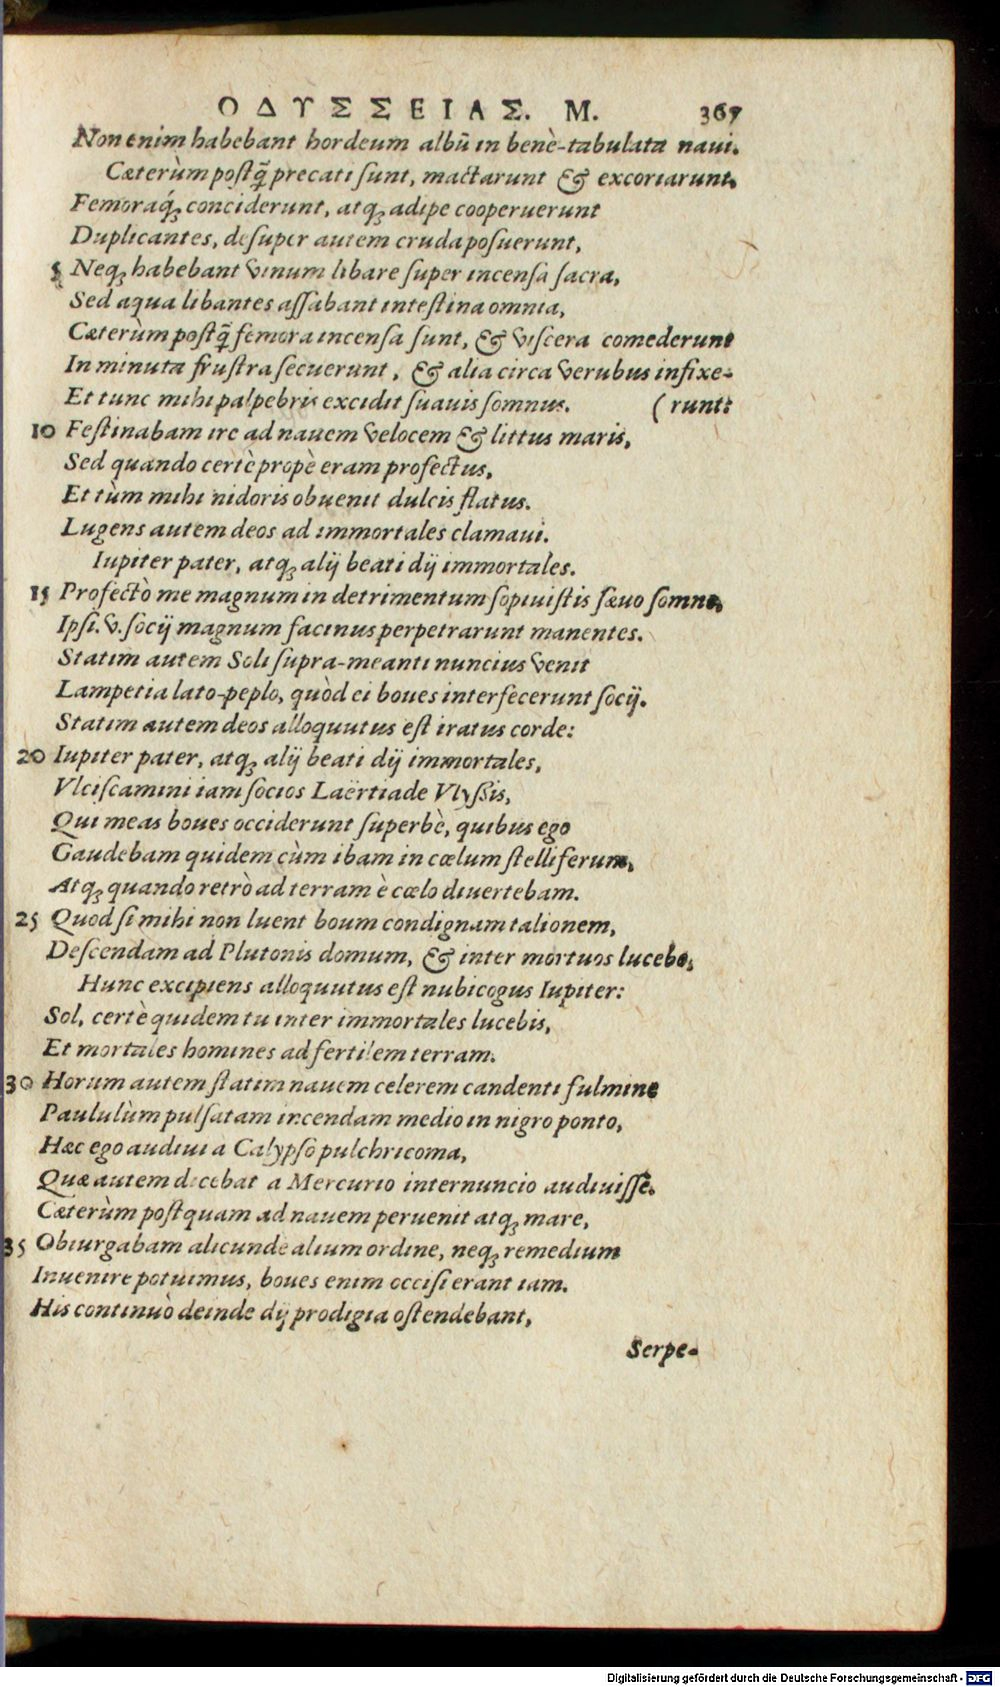 ΟΔΥΣΣΕΙΑΣ. Μ. 367
Non enim habebant hordeum albū in benè-tabulata naui.
Cæterùm postq̃ precati sunt, mactarunt & excoriarunt,
Femoraq́ꝫ conciderunt, atqꝫ adipe cooperuerunt
Duplicantes, desuper autem cruda posuerunt,
5 Neqꝫ habebant vinum libare super incensa sacra,
Sed aqua libantes assabant intestina omnia,
Cæterùm postq̃ femora incensa sunt, & viscera comederunt
In minuta frustra secuerunt, & alia circa verubus infixe-
Et tunc mihi palpebris excidit suauis somnus. (runt:
10 Festinabam ire ad nauem velocem & littus maris,
Sed quando certè propè eram profectus,
Et tùm mihi nidoris obuenit dulcis flatus.
Lugens autem deos ad immortales clamaui.
Iupiter pater, atqꝫ alij beati dij immortales.
15 Profectò me magnum in detrimentum sopiuistis sæuo somno,
Ipsi.v. socij magnum facinus perpetrarunt manentes.
Statim autem Soli supra-meanti nuncius venit
Lampetia lato-peplo, quòd ei boues interfecerunt socij.
Statim autem deos alloquutus est iratus corde:
20 Iupiter pater, atqꝫ alij beati dij immortales,
Vlciscamini iam socios Laërtiade Vlyssis,
Qui meas boues occiderunt superbè, quibus ego
Gaudebam quidem cùm ibam in cœlum stelliferum,
Atqꝫ quando retrò ad terram è cœlo diuertebam.
25 Quod si mihi non luent boum condignam talionem,
Descendam ad Plutonis domum, & inter mortuos lucebo,
Hunc excipiens alloquutus est nubicogus Iupiter:
Sol, certè quidem tu inter immortales lucebis,
Et mortales homines ad fertilem terram.
30 Horum autem statim nauem celerem candenti fulmine
Paululùm pulsatam incendam medio in nigro ponto,
Hæc ego audiui a Calypso pulchricoma,
Quæ autem dicebat a Mercurio internuncio audiuisse.
Cæterùm postquam ad nauem peruenit atqꝫ mare,
35 Obiurgabam alicunde alium ordine, neqꝫ remedium
Inuenire potuimus, boues enim occisi erant iam.
His continuò deinde dij prodigia ostendebant,
Serpe-
Digitalisierung gefördert durch die Deutsche Forschungsgemeinschaft - DFG